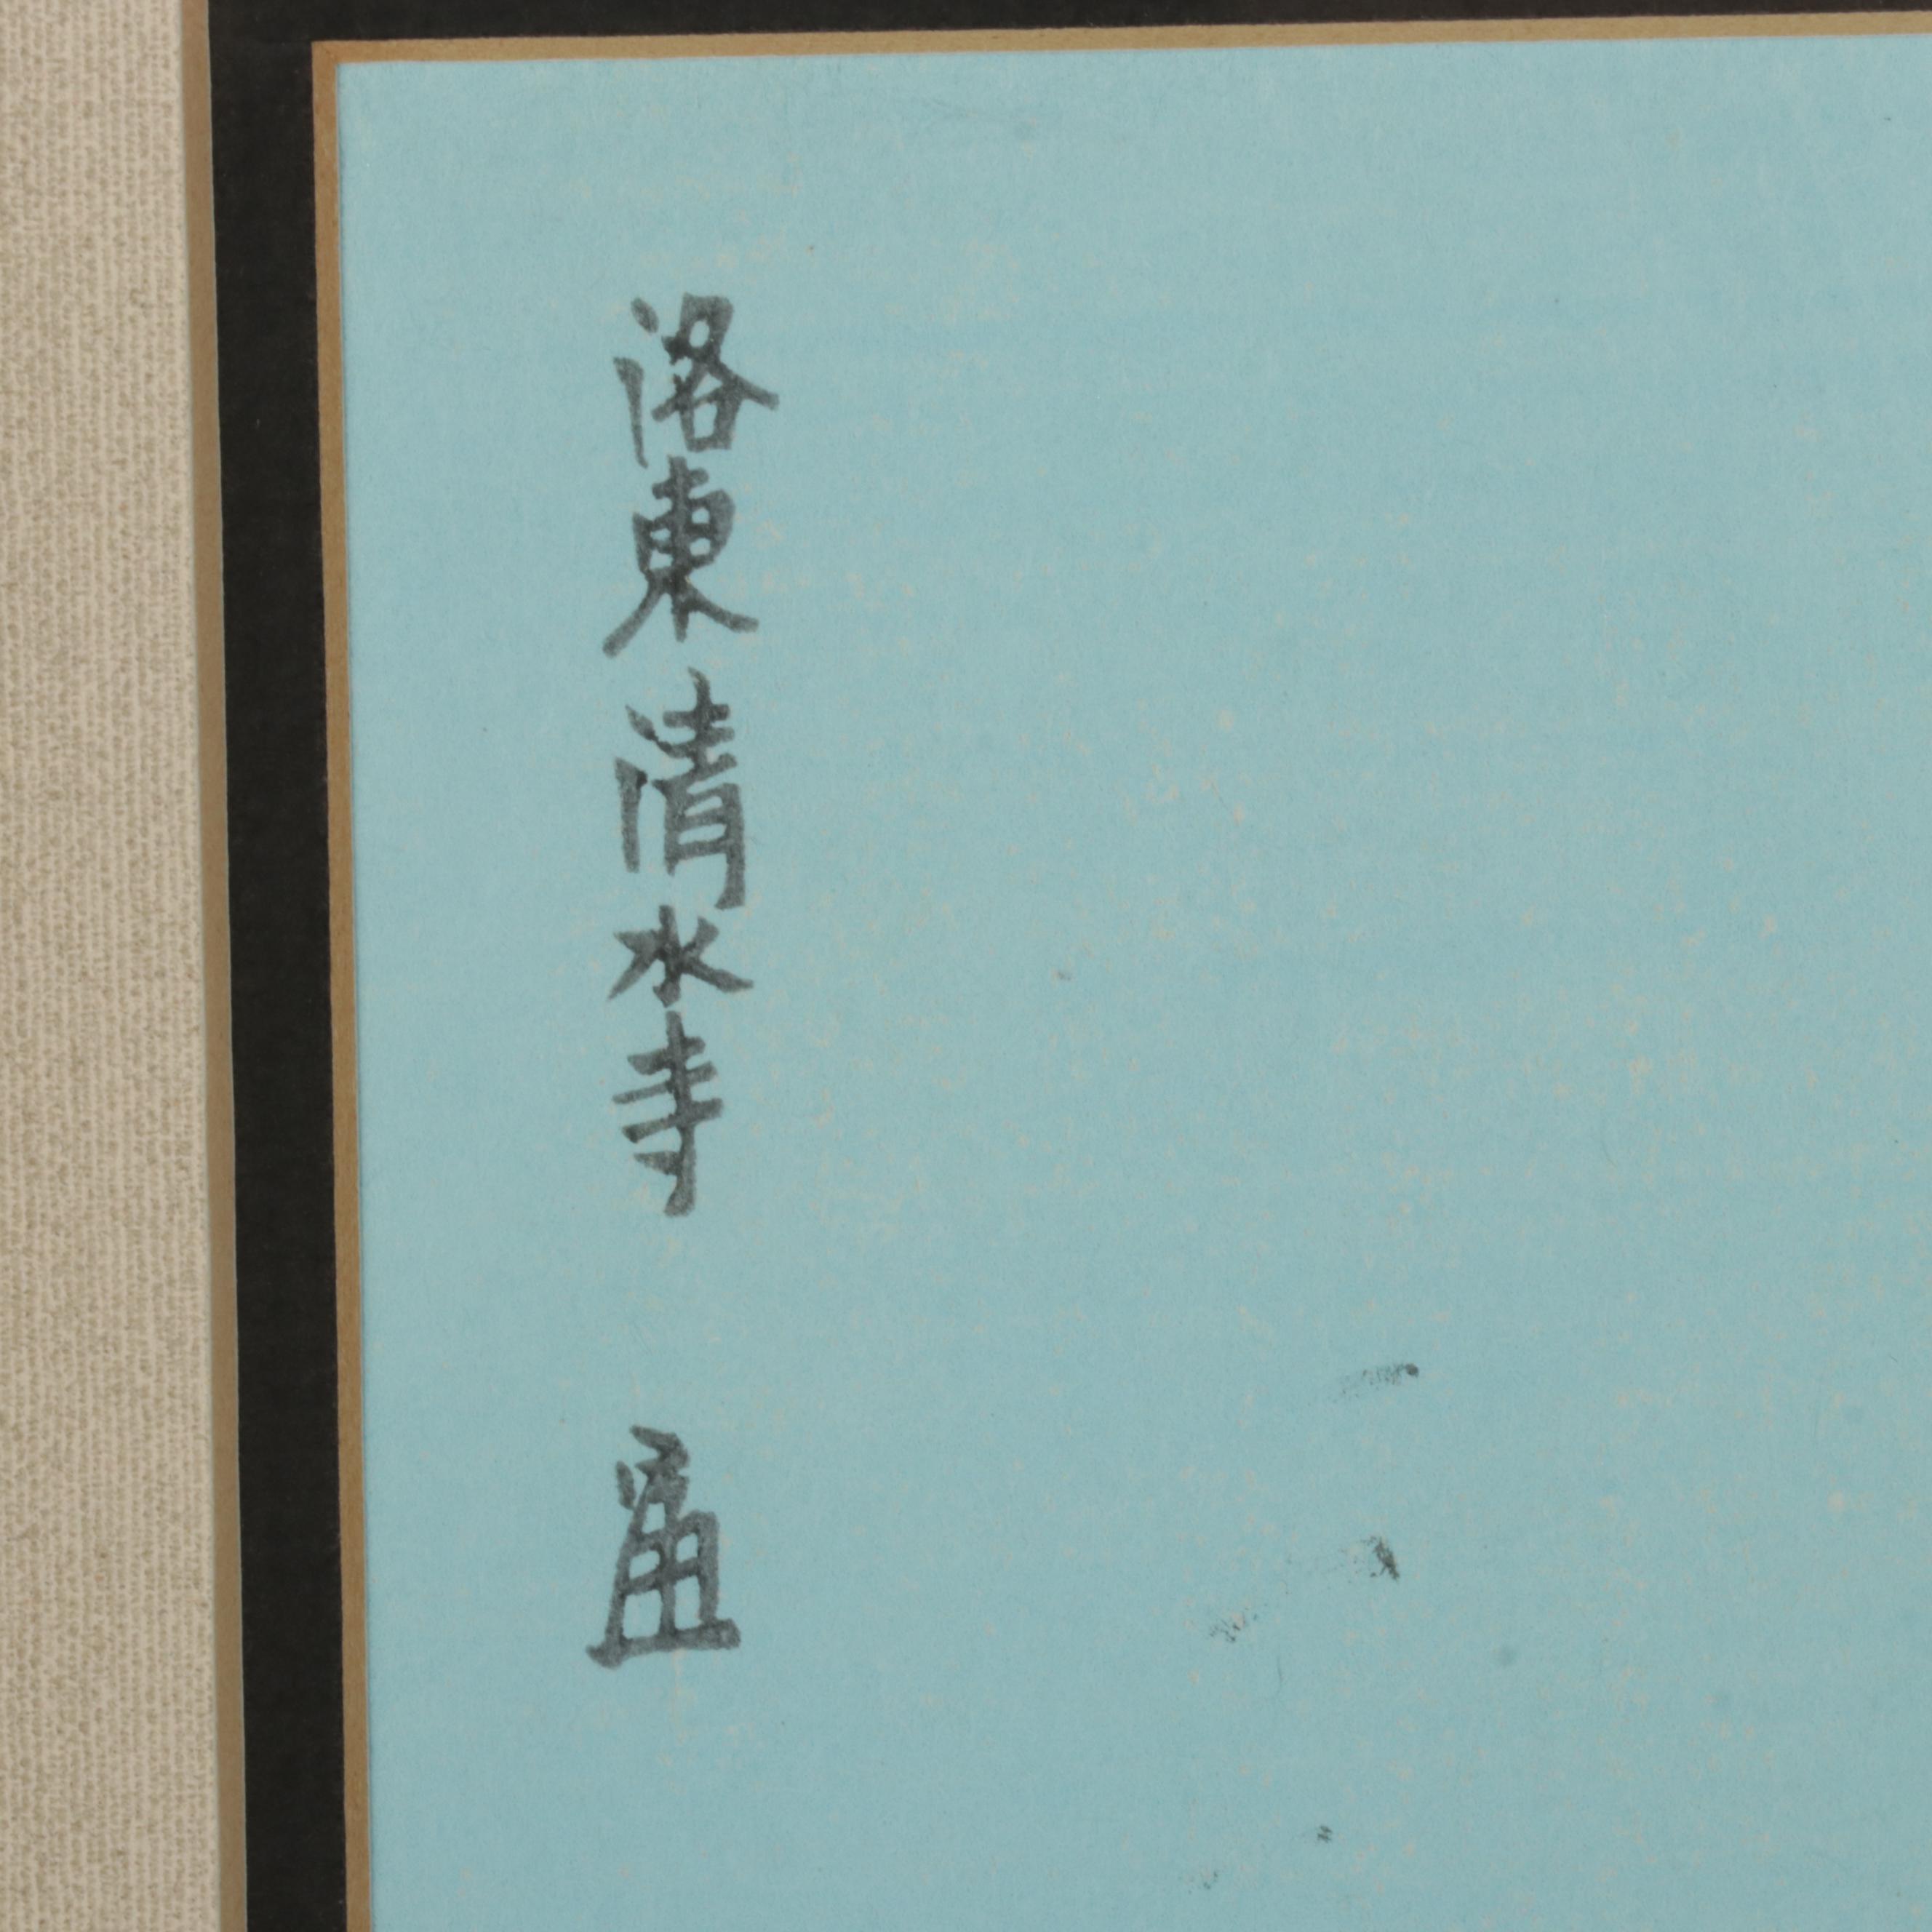 洛東清水寺